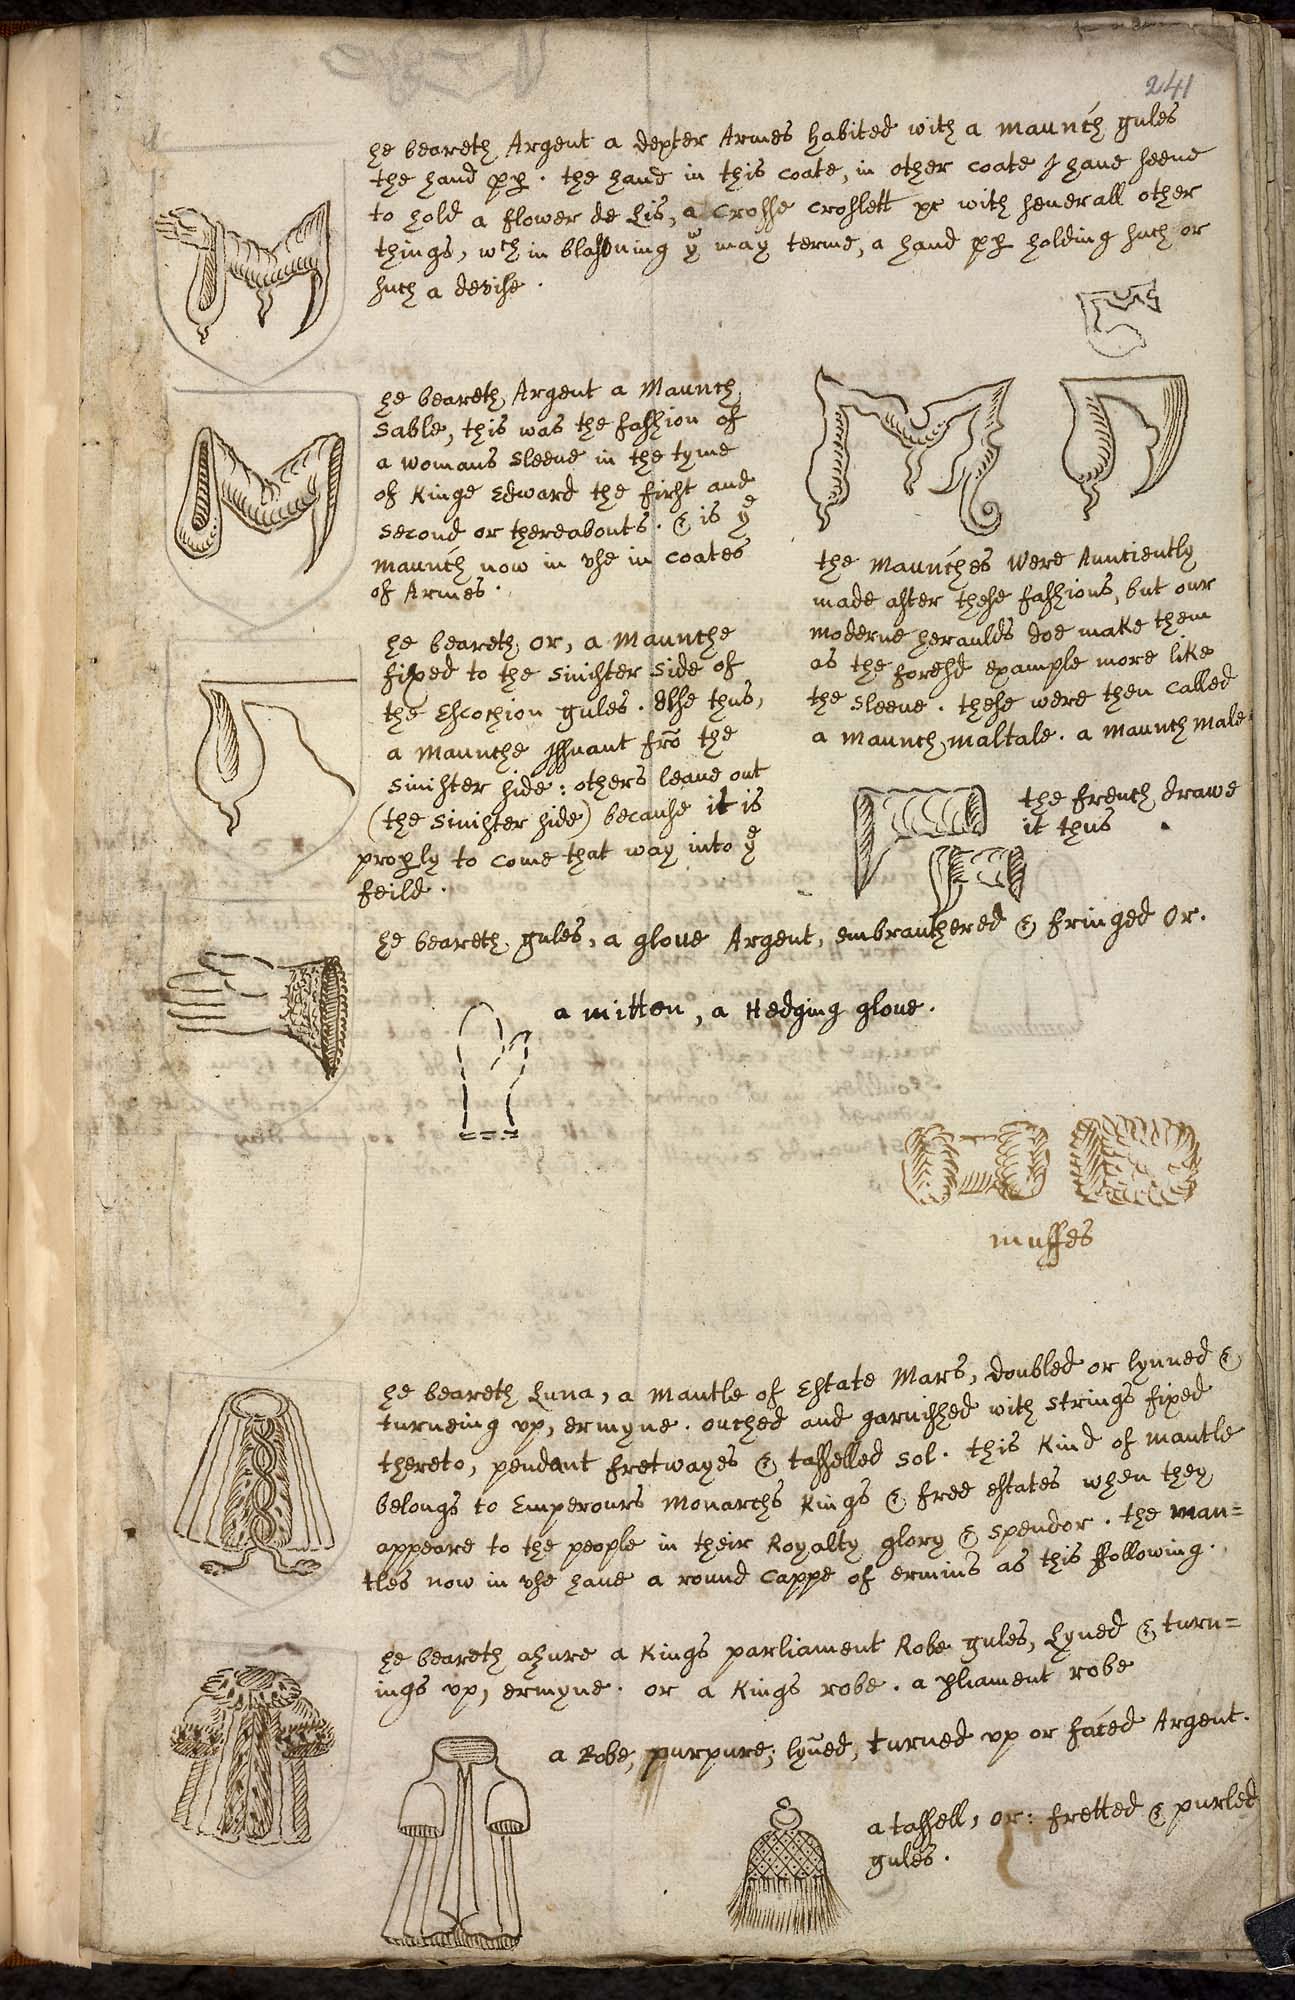 241
he beareth Argent a dexter Armes habited with a maunch gules
the hand pp̱. the hand in this coate, in other coate I haue seene
to hold a flower de Lis, a Crosse croslett pr with seuerall other
things, wch in blasoning yu may terme, a hand pp̱ holding such or
such a devise.
he beareth Argent a Maunch
Sable, this was the fashion of
a womans sleeue in the tyme
of Kinge Edward the first and
second or thereabouts. & is ye
maunch now in vse in coates
of Armes.
the Maunches were Aunciently
made after these fashions, but our
moderne heraulds doe make them
as the foresd example more like
the sleeue. these were then called
a maunch, maltale. a maunch male
he beareth, or, a maunche
fixed to the sinister side of
the Escochion gules. Else thus,
a Maunche Issuant frō the
sinister side: others leaue out
(the sinister side) because it is
proply to come that way into ye
feild.
the french drawe
it thus
he beareth gules, a gloue Argent, embrauthered & fringed Or.
a mitten, a Hedging gloue.
muffes
he beareth Luna, a mantle of Estate Mars, doubled or lynned &
turneing vp, ermyne. ouched and garnished with strings fixed
thereto, pendant fretwayes & tasselled Sol. this kind of mantle
belongs to Emperours Monarchs Kings & free estates when they
appeare to the people in their Royalty glory & spendor. the man=
tles now in vse haue a round Cappe of ermins as this ffollowing.
he beareth azure a Kings parliament Robe gules, Lyned & turn=
ings vp, ermyne. or a Kings robe. a pliament robe
a Robe, purpure; lyned, turned vp or faced Argent.
a tassell, or: fretted & purled
gules.